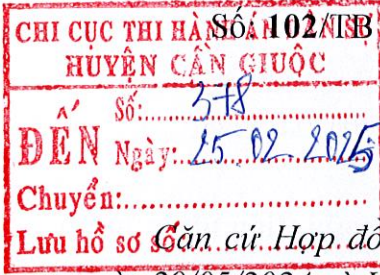 CHI CỤC THI HÀNH ÁN DÂN SỰ
Số: 102/TB
HUYỆN CẦN GIUỘC
ĐẾN
Số: 378
Ngày: 25.02.2025
Chuyển:
Lưu hồ sơ số
Căn cứ Hợp đồ